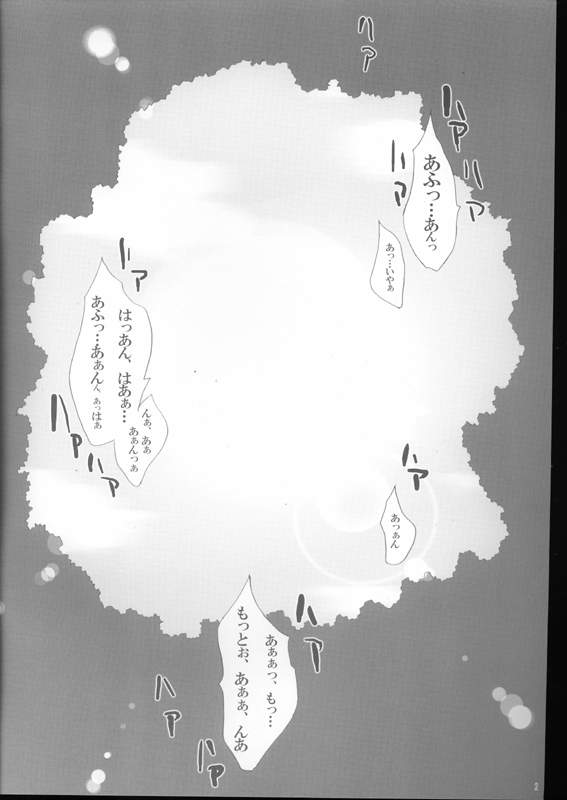 ハァ
ハァ
ハァ
ハァ
あふっ…あんっ
あっ…いやぁ
ドァ
はっあん、はあぁ…
あふっ…あぁん
ん、あっはぁ
んぁ、あぁ
あぁんっあ
ハァ
ハァ
ハァ
あっぁん
ハァ
あぁぁっ、もっ…
もっとぉ、あぁぁ、んあ
ハァ
ハァ
2